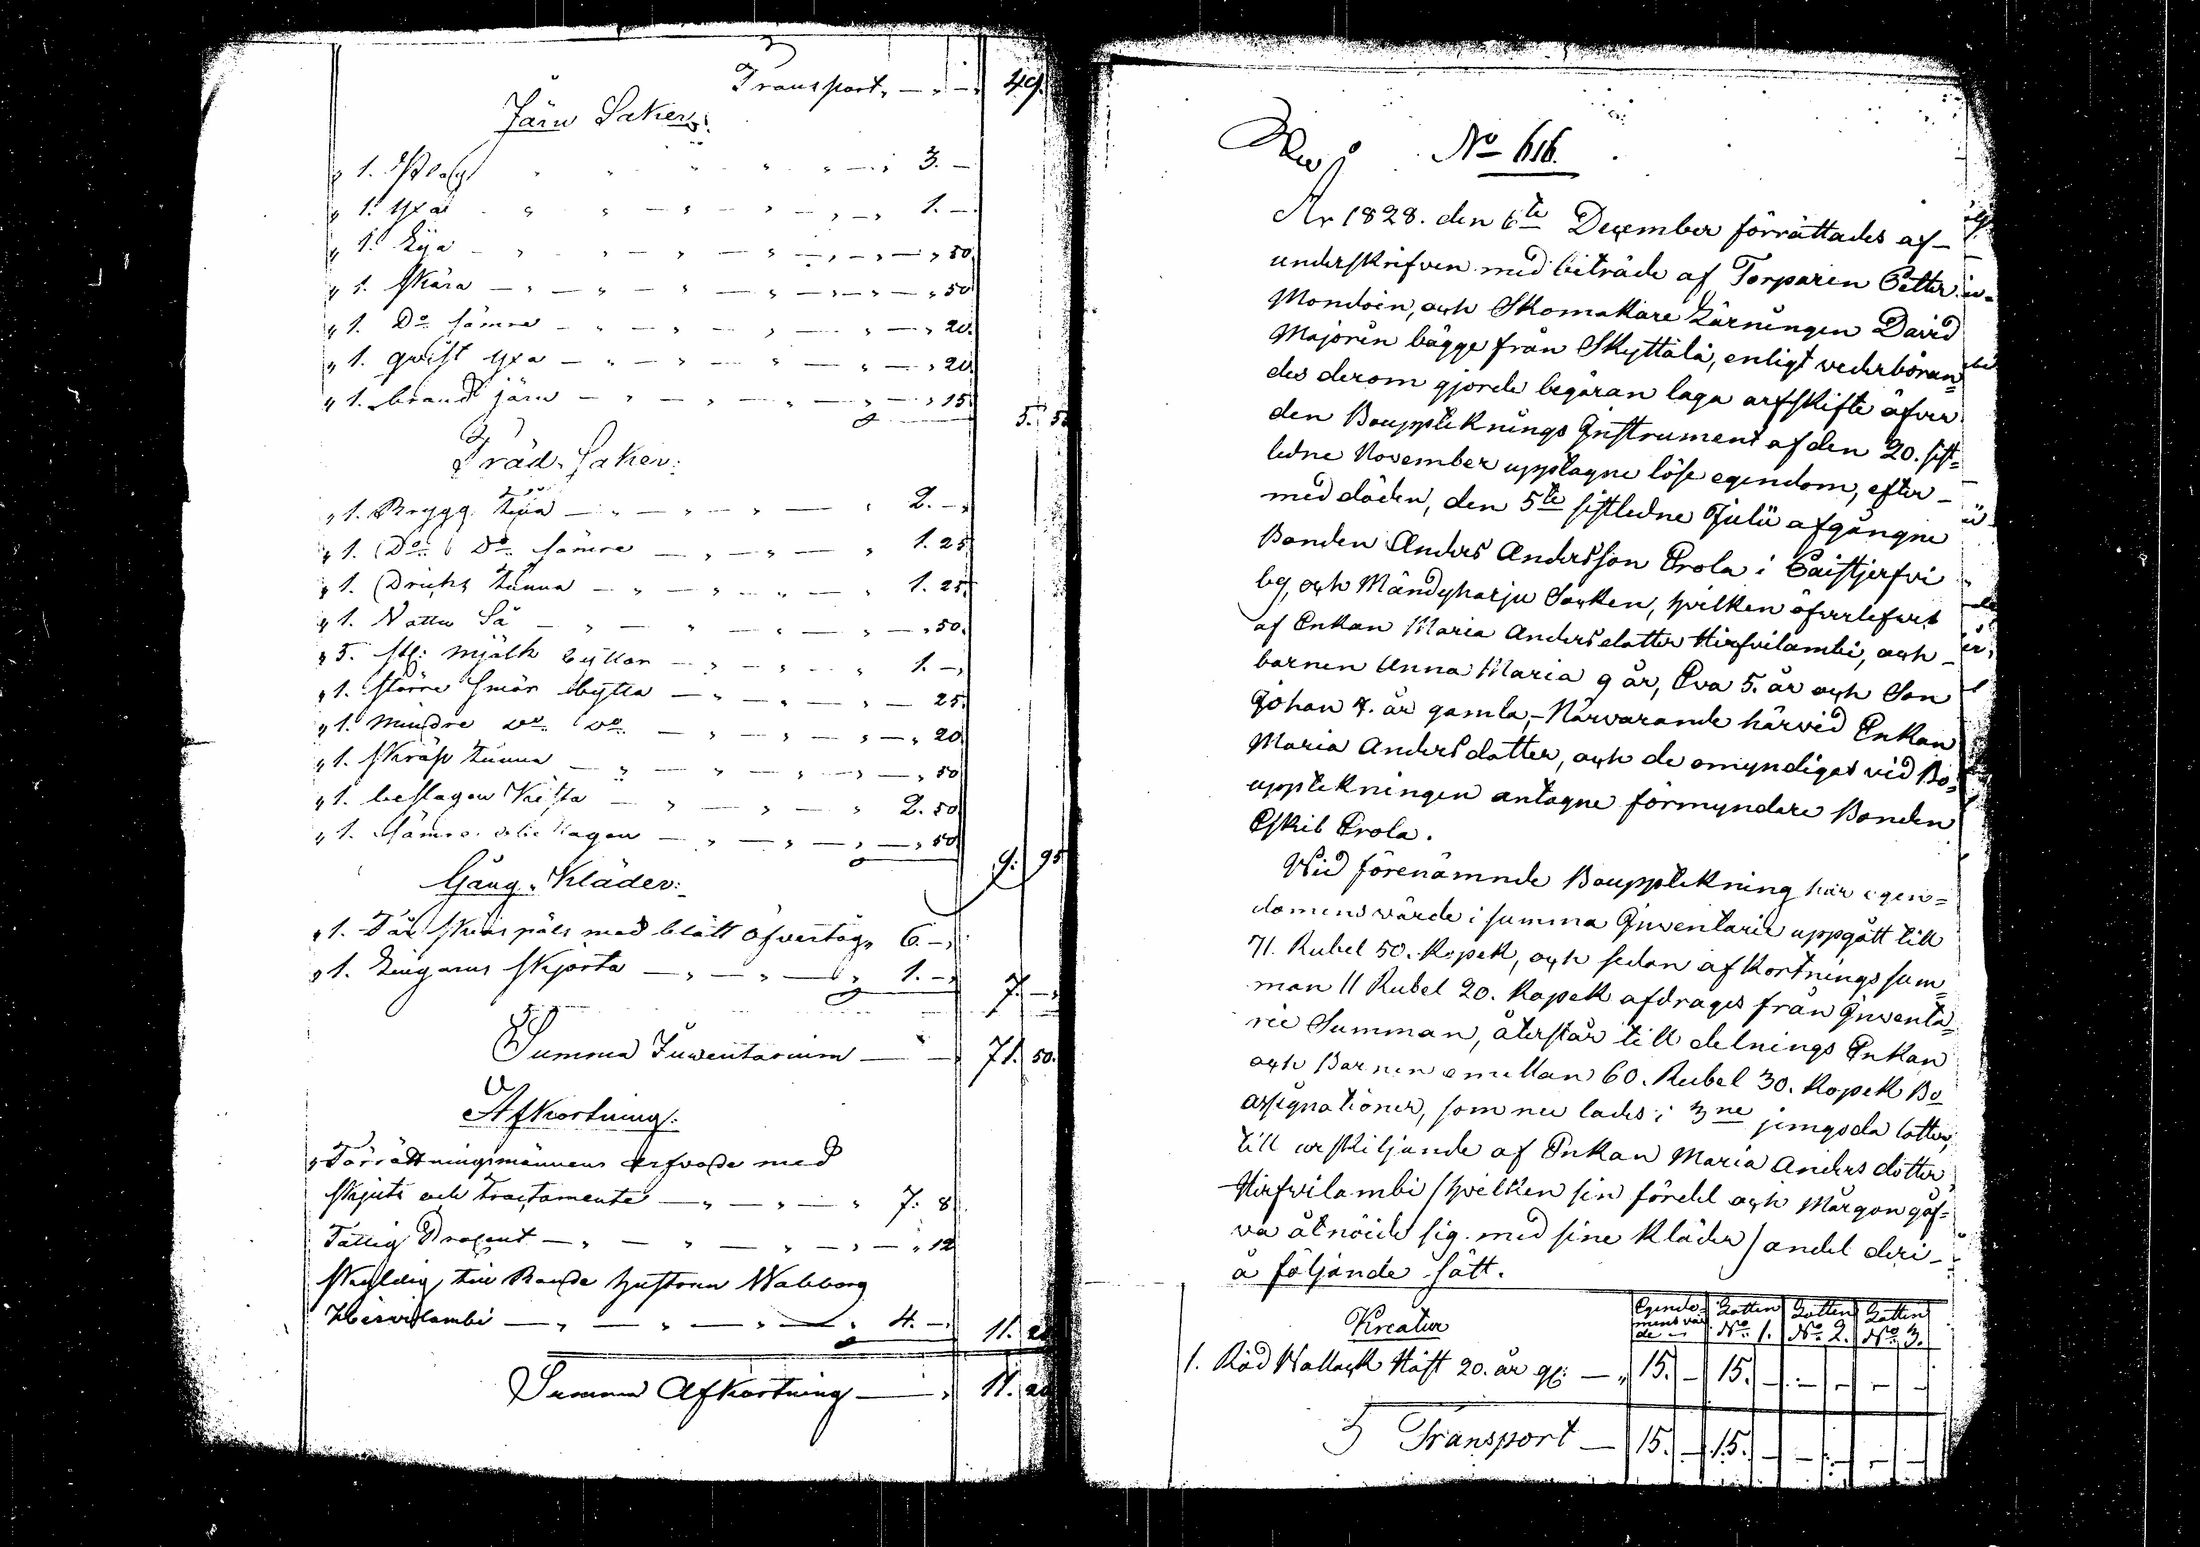 Transport, — " — " 49.
Järn Saker:
" 1. " " " " — " 3. —
" 1. yxa " " — " — " — " 1. —
" 1. Lija — " " — " — " — " 50
" 1. skära — " — " — " — " — " 50
" 1. Do sämre — " — " — " — " 20.
" 1. qvist yxa — " — " — " — " 20
" 1. brand järn — " — " — " — " 15
5. 55
Träd Saker:
" 1. Brygg tina — " — " — " 2. — "
" 1. Do Do sämre — " — " — " 1. 25
" 1. Dricks tunna — " — " — " 1. 25
" 1. Vattu Så — " — " — " — " 50.
" 5. st: mjölk byttor — " — " — " 1. — "
" 1. större smör bytta — " — " — " — 25.
" 1. mindre do do — " — " — " — " 20
" 1. skräp tunna — " — " — " — " 50
" 1. beslagen Kista — " — " — " 2. 50
" 1. sämre — " — " — " — " 50
9. 95
Gång Kläder:
" 1. Får skins päls med blått öfvertåg " 6. — "
" 1. Lingarns skjorta — " — " — " 1. — "
7. — "
Summa Inventarium — " — 71. 50.
Afkortning:
" Förrättningsmännens arfvode med
skjuts och Tractamente — " — " — " 7: 8
Fattig Procent — " — " — " — " — " 12
Skyldig till Bonde hustrun Walborg
Hirvilambi — " — " — " — " 4. — " 11. 20
Summa Afkortning — " 11. 20
No 616.
År 1828. den 6te December förrättades af-
underskrifven med biträde af Torparen Petter
Mondoin, och Skomakare Lärningen David
Majorin bägge från Skyttälä, enligt vederböran=
des derom gjorde begäran laga arfskifte öfver
den Bouppteknings Instrument af den 20. sist=
ledne November upptagne löse egendom, efter-
med döden, den 5te sistledne Julii afgångne
Bonden Anders Andersson Erola i Paistjerfvi
by, och Mändyharju Socken, hvilken öfverlefves
af Enkan Maria Andersdotter Hirfvilambi, och
barnen Anna Maria 9 år, Eva 5. år och Son
Johan 7. år gamla,- Närvarande härvid Enkan
Maria Andersdotter, och de omyndigas vid Bo=
upptekningen antagne förmyndare Bonden
Eskil Erola.
Wid förenämnde Bouppteckning har egen=
domens värde i summa Inventarie uppgått till
71. Rubel 50. Kopek, och sedan afkortnings sum=
man 11 Rubel 20. Kopek afdrages från Inventa=
rie Summan, återstår till delnings Enkan
och Barnen emellan 60. Rubel 30. Kopek Bo
assignationer, som nu lades i 3ne jemgoda lotter,
till urskiljande af Enkan Maria Anders dotter
Hirfvilambi / hvilken sin fördel och Morgongåf=
va åtnöide sig med sine kläder / andel deri-
å följande sätt.
Kreatur
Egendo=
mens vär
de
Lotten
No 1.
Lotten
No 2.
Lotten
No 3.
1. Röd Wallack Häst 20. år gl: — " 15. — 15. — — — — —
Transport — 15. — 15. — — — — —